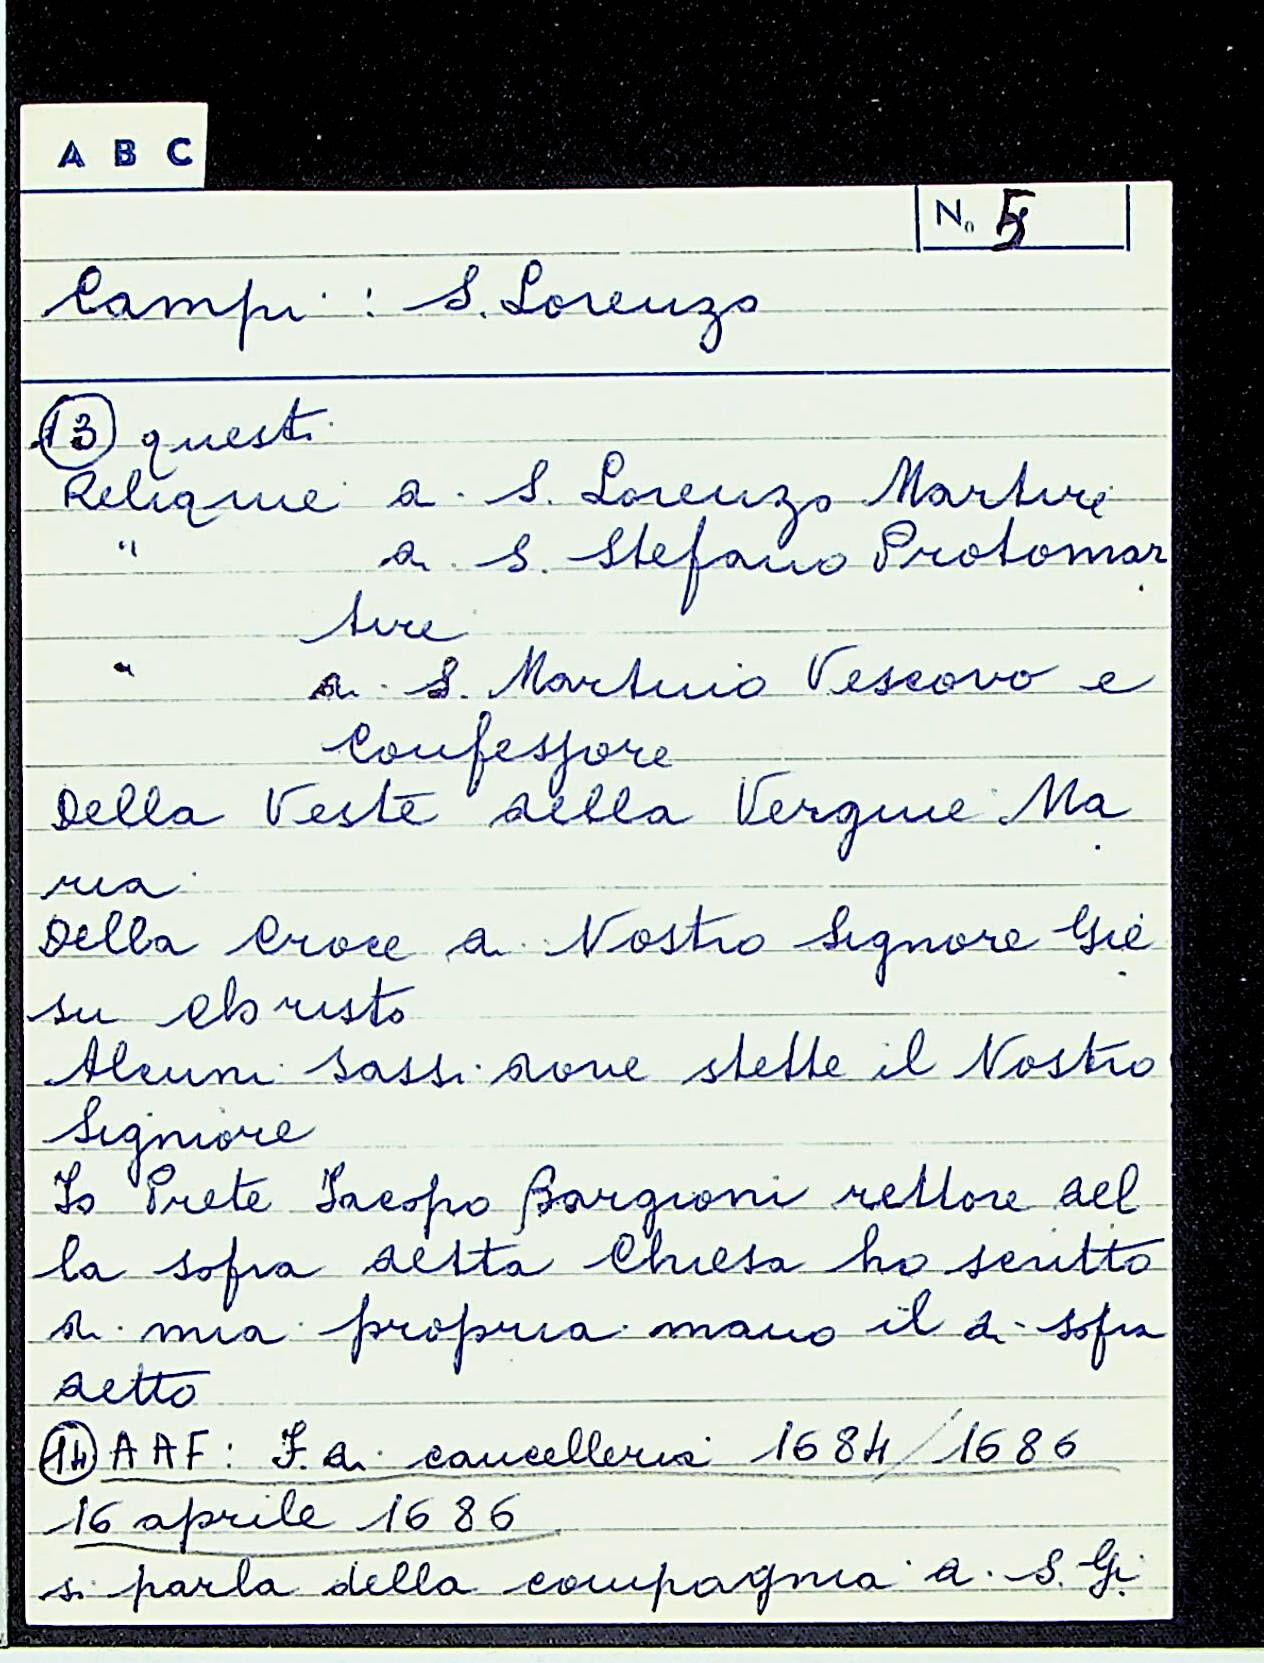 A B C
N. 5
Campi : S. Lorenzo
13 questi
Relique di S. Lorenzo Martire
" di S. Stefano Protomar
tire
" di S. Martinio Vescovo e
Confessore
Della Veste della Vergine Ma
ria
Della Croce di Nostro Signore Gie
su Christo
Alcuni sassi dove stette il Nostro
Signiore
Io Prete Iacopo Bargioni rettore del
la sopra detta Chiesa ho scritto
di mia propria mano il di sopra
detto
14 AAF: F. di cancelleria 1684/1686
16 aprile 1686
si parla della compagnia di S. Gi